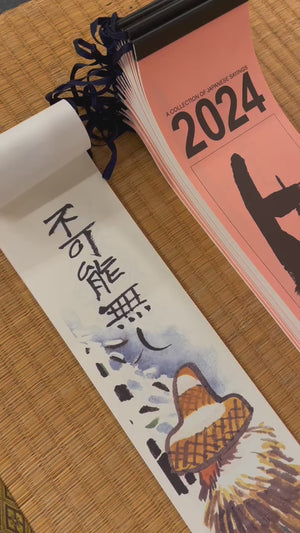 A COLLECTION OF JAPANESE SAYINGS
2024
不可能無し